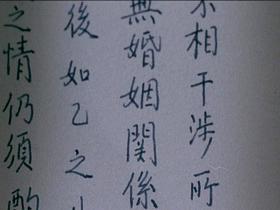 相干涉所
無婚姻関係
後如乙之
之情仍須酌